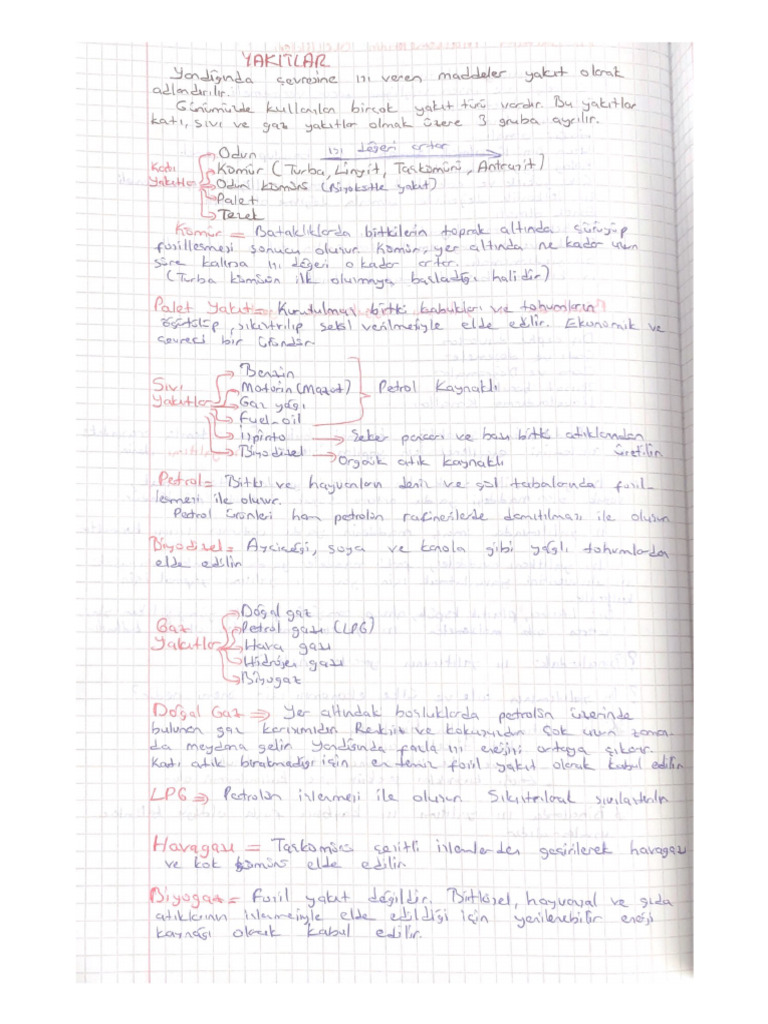 YAKITLAR
Yandığında çevresine ısı veren maddeler yakıt olarak
adlandırılır.
Günümüzde kullanılan birçok yakıt türü vardır. Bu yakıtlar
katı, sıvı ve gaz yakıtlar olmak üzere 3 gruba ayrılır.
ısı değeri artar
Katı Yakıtlar
Odun
Kömür (Turba, Linyit, Taşkömürü, Antrasit)
Odun kömürü (Biyokütle yakıt)
Palet
Tezek
Kömür = Bataklıklarda bitkilerin toprak altında çürüyüp
fosilleşmesi sonucu oluşur. Kömür, yer altında ne kadar uzun
süre kalırsa ısı değeri o kadar artar.
(Turba kömürün ilk oluşmaya başladığı halidir)
Palet Yakıt = Kurutulmuş bitki kabukları ve tohumların
öğütülüp, sıkıştrılıp şekil verilmesiyle elde edilir. Ekonomik ve
çevreci bir üründür.
Sıvı Yakıtlar
Benzin
Motorin (Mazot)
Gaz yağı
Fuel-oil
Petrol Kaynaklı
İspirto → Şeker pancarı ve bazı bitki atıklarından
üretilir
Biyodizel → Organik atık kaynaklı
Petrol = Bitki ve hayvanların deniz ve göl tabanlarında fosil-
leşmesi ile oluşur.
Petrol ürünleri ham petrolün rafinerilerde damıtılması ile oluşur
Biyodizel = Ayçiçeği, soya ve kanola gibi yağlı tohumlardan
elde edilir
Gaz Yakıtlar
Doğal gaz
Petrol gazı (LPG)
Hava gazı
Hidrojen gazı
Biyogaz
Doğal Gaz ⇒ Yer altındaki boşluklarda petrolün üzerinde
bulunan gaz karışımıdır. Renksiz ve kokusuzdur. Çok uzun zaman-
da meydana gelir. Yandığında fazla ısı enerjisi ortaya çıkarır.
Katı atık bırakmadığı için en temiz fosil yakıt olarak kabul edilir
LPG ⇒ Petrolün işlenmesi ile oluşur. Sıkıştırılarak sıvılaştırılır
Havagazı = Taşkömürü çeşitli işlemlerden geçirilerek havagazı
ve kok kömürü elde edilir
Biyogaz = Fosil yakıt değildir. Bitkisel, hayvansal ve gıda
atıklarının işlenmesiyle elde edildiği için yenilenebilir enerji
kaynağı olarak kabul edilir.